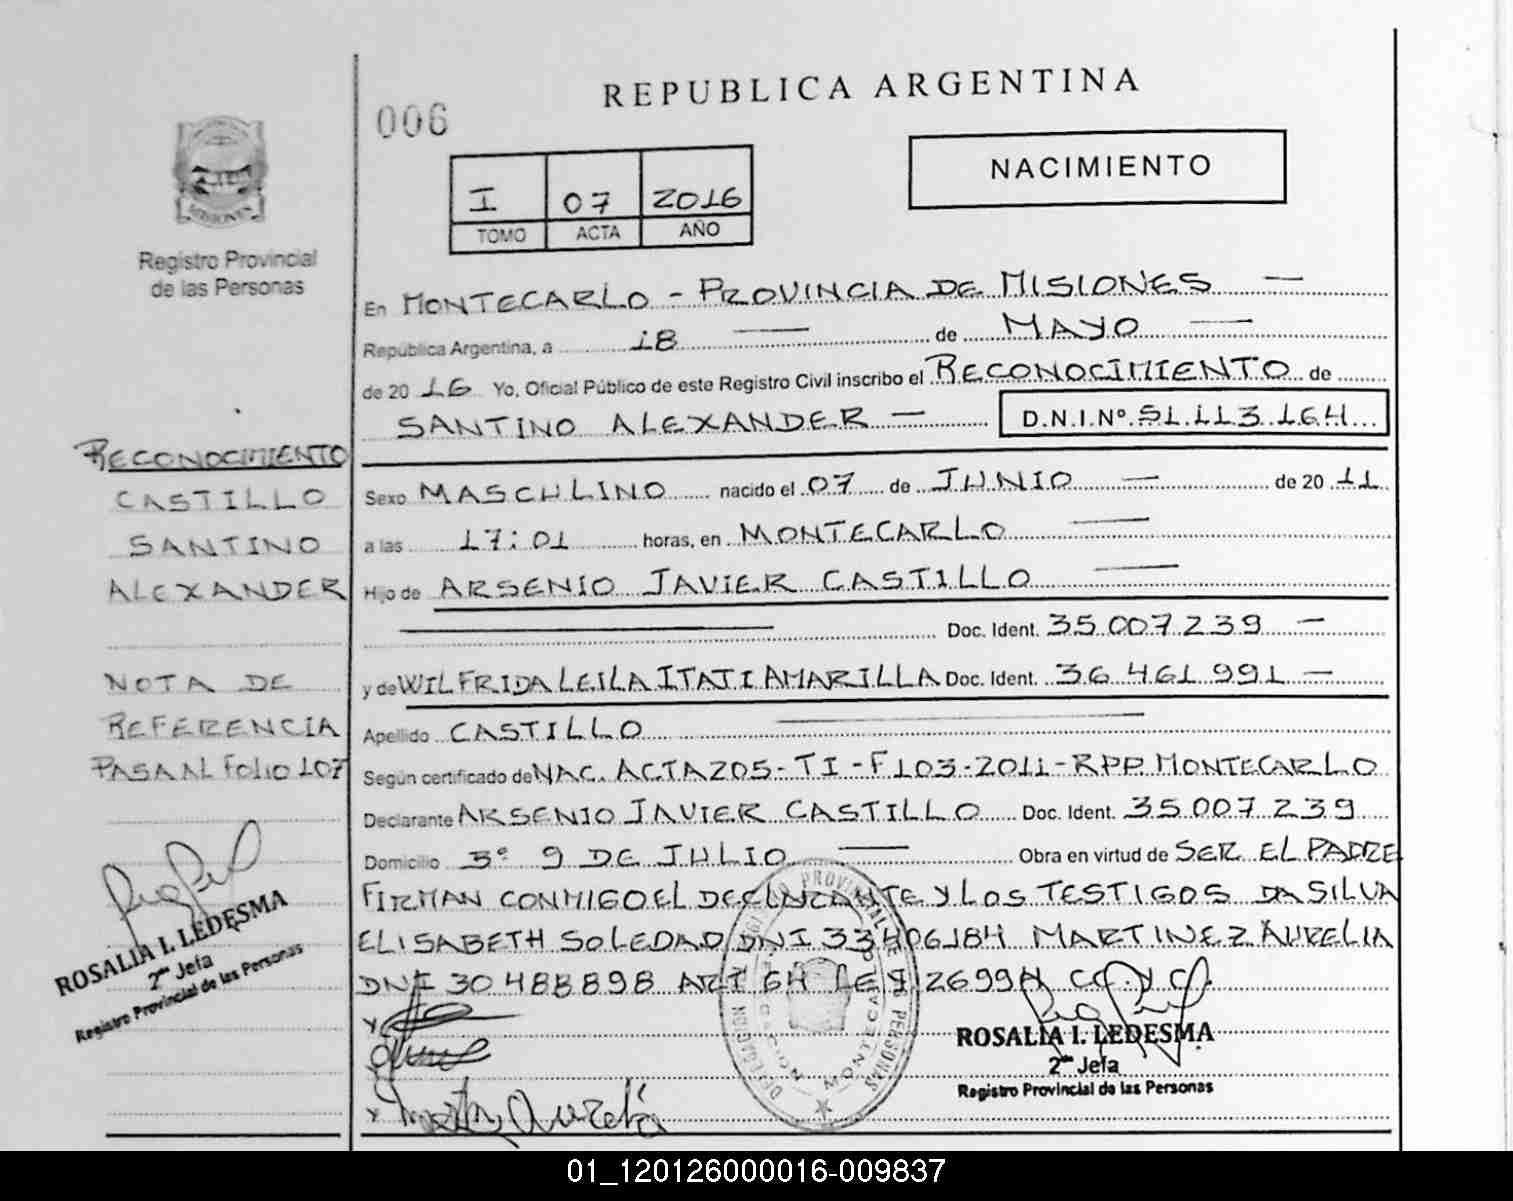 REPUBLICA ARGENTINA
006
NACIMIENTO
I 07 2016
TOMO ACTA AÑO
MISIONES
Registro Provincial
de las Personas
En MONTECARLO - PROVINCIA DE MISIONES —
República Argentina, a 18 — de MAYO —
de 2016 Yo, Oficial Público de este Registro Civil inscribo el RECONOCIMIENTO de
SANTINO ALEXANDER — D.N.I.Nº 51.113.164
Sexo MASCULINO nacido el 07 de JUNIO — de 2011
a las 17:01 horas, en MONTECARLO —
Hijo de ARSENIO JAVIER CASTILLO —
Doc. Ident. 35.007.239 —
y de WILFRIDA LEILA ITATI AMARILLA Doc. Ident. 36 461 991 —
Apellido CASTILLO
Según certificado de NAC. ACTA 205-TI-F103-2011-RPP. MONTECARLO
Declarante ARSENIO JAVIER CASTILLO Doc. Ident. 35.007.239
Domicilio Bº 9 DE JULIO — Obra en virtud de SER EL PADRE
FIRMAN CONMIGO EL DECLARANTE Y LOS TESTIGOS DA SILVA
ELISABETH SOLEDAD DNI 33406184 MARTINEZ AURELIA
DNI 30488898 ART 64 LEY 26994 CC. Y C.
RECONOCIMIENTO
CASTILLO
SANTINO
ALEXANDER
NOTA DE
REFERENCIA
PASA AL FOLIO 107
ROSALIA I. LEDESMA
2da Jefa
Registro Provincial de las Personas
ROSALIA I. LEDESMA
2da Jefa
Registro Provincial de las Personas
PROVINCIAL DE PERSONAS
DELEGACION
MONTECARLO
01_120126000016-009837